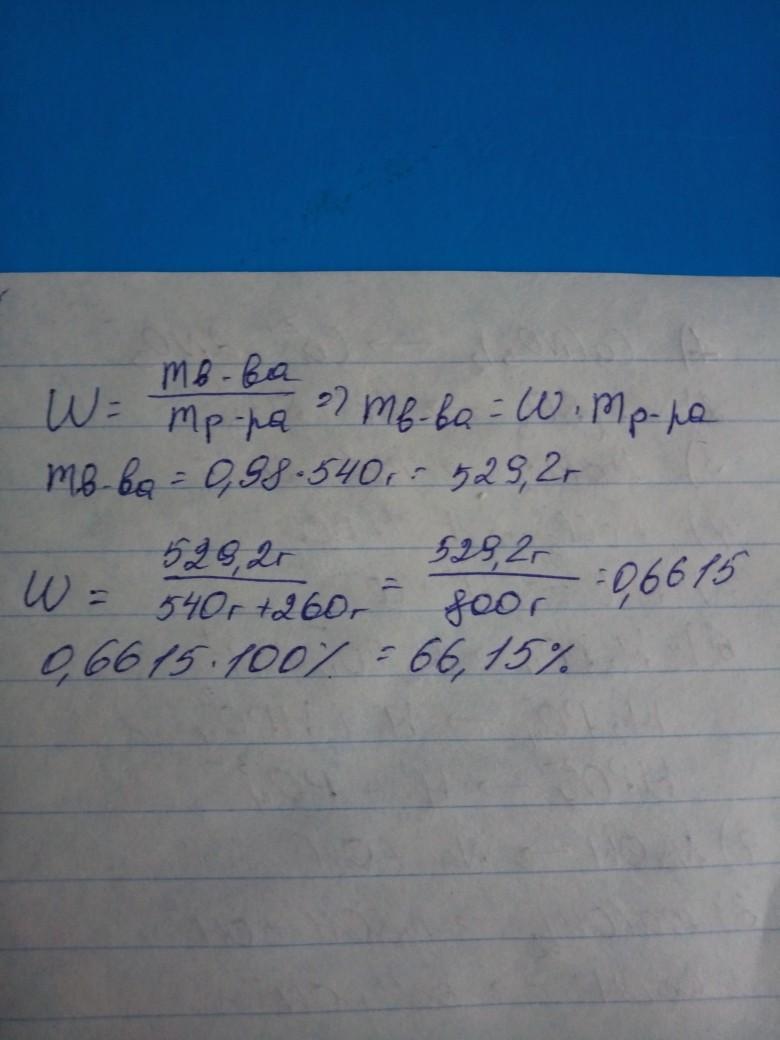 W = mв-ва / mр-ра => mв-ва = W · mр-ра
mв-ва = 0,98 · 540г = 529,2г
W = 529,2г / 540г + 260г = 529,2г / 800г = 0,6615
0,6615 · 100% = 66,15%